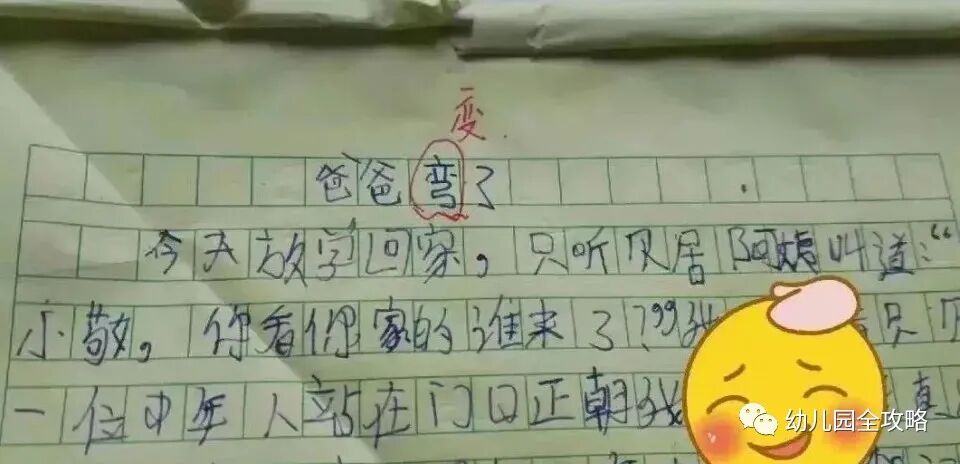 变
爸爸弯了
今天放学回家，只听居阿姨叫道：“
小敬，你看你家的谁来了？”我 只
一位中年人站在门口正朝我 真
幼儿园全攻略